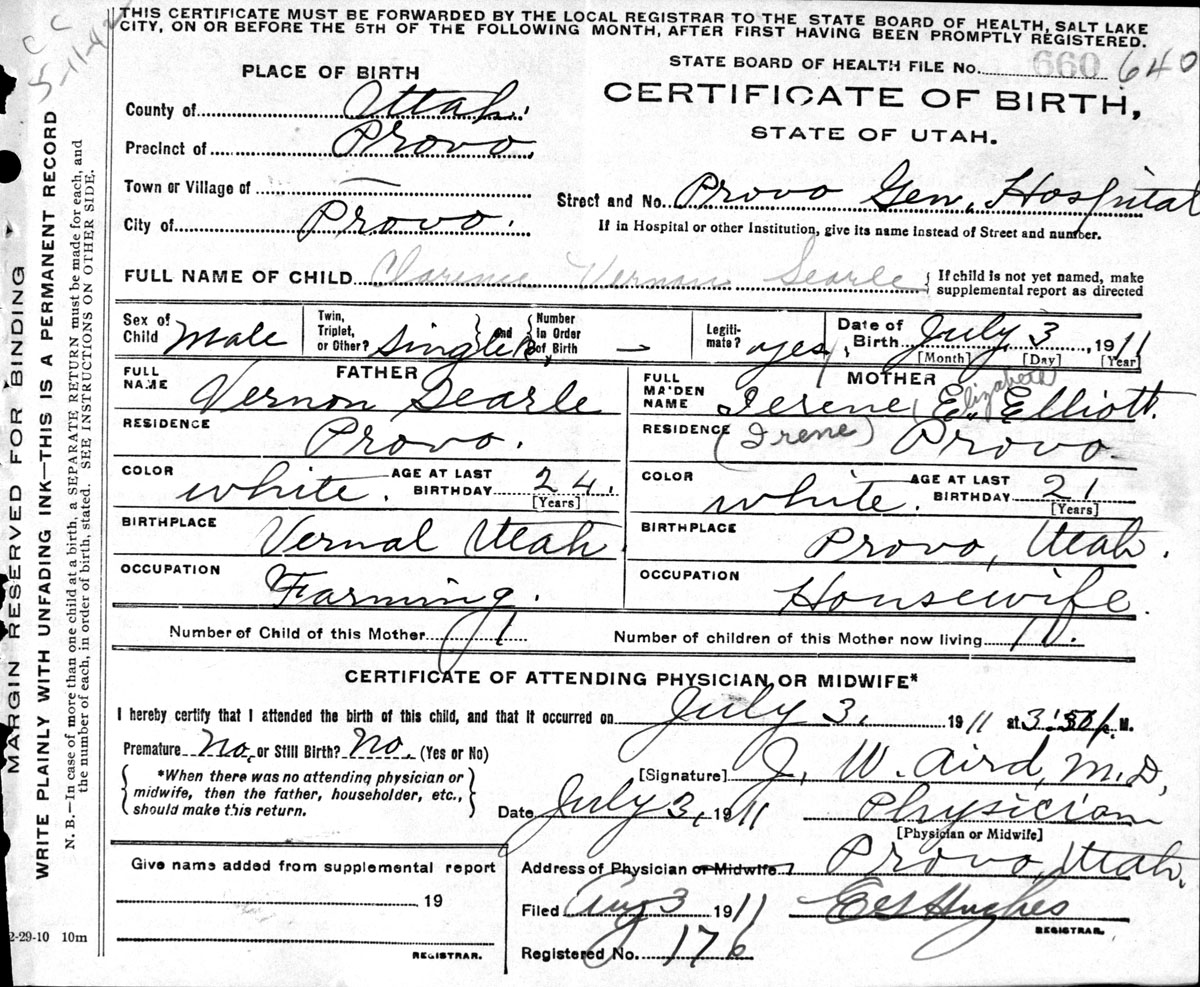 THIS CERTIFICATE MUST BE FORWARDED BY THE LOCAL REGISTRAR TO THE STATE BOARD OF HEALTH, SALT LAKE
CITY, ON OR BEFORE THE 5TH OF THE FOLLOWING MONTH, AFTER FIRST HAVING BEEN PROMPTLY REGISTERED.
CC
5-11-42
STATE BOARD OF HEALTH FILE No. 660 640
PLACE OF BIRTH
CERTIFICATE OF BIRTH,
STATE OF UTAH.
County of Uttah.
Precinct of Provo.
Town or Village of —
Street and No. Provo Gen. Hospital
City of Provo.
If in Hospital or other Institution, give its name instead of Street and number.
FULL NAME OF CHILD Clarence Vernon Searle { If child is not yet named, make
supplemental report as directed
Sex of Child Male
Twin, Triplet, or Other? Single
and Number in Order of Birth —
Legitimate? yes
Date of Birth July 3, 1911
[Month] [Day] [Year]
FATHER
FULL NAME Vernon Searle
RESIDENCE Provo.
COLOR white.
AGE AT LAST BIRTHDAY 24.
[Years]
BIRTHPLACE Vernal Utah
OCCUPATION Farming.
MOTHER
FULL MAIDEN NAME Ierene E. Elliott.
Elizabeth
RESIDENCE (Irene) Provo.
COLOR white.
AGE AT LAST BIRTHDAY 21
[Years]
BIRTHPLACE Provo, Utah.
OCCUPATION Housewife.
Number of Child of this Mother 1
Number of children of this Mother now living
CERTIFICATE OF ATTENDING PHYSICIAN OR MIDWIFE*
I hereby certify that I attended the birth of this child, and that it occurred on July 3, 1911 at M.
Premature No. or Still Birth? No. (Yes or No)
*When there was no attending physician or
midwife, then the father, householder, etc.,
should make this return.
[Signature] J. W. Aird, M.D,
Date July 3, 1911 Physician
[Physician or Midwife]
Give name added from supplemental report
19
REGISTRAR.
Address of Physician or Midwife Provo, Utah.
Filed Aug 3 1911 Hughes
REGISTRAR.
Registered No. 176
2-29-10 10m
MARGIN RESERVED FOR BINDING
WRITE PLAINLY WITH UNFADING INK—THIS IS A PERMANENT RECORD
N. B.—In case of more than one child at a birth, a SEPARATE RETURN must be made for each, and
the number of each, in order of birth, stated. SEE INSTRUCTIONS ON OTHER SIDE.